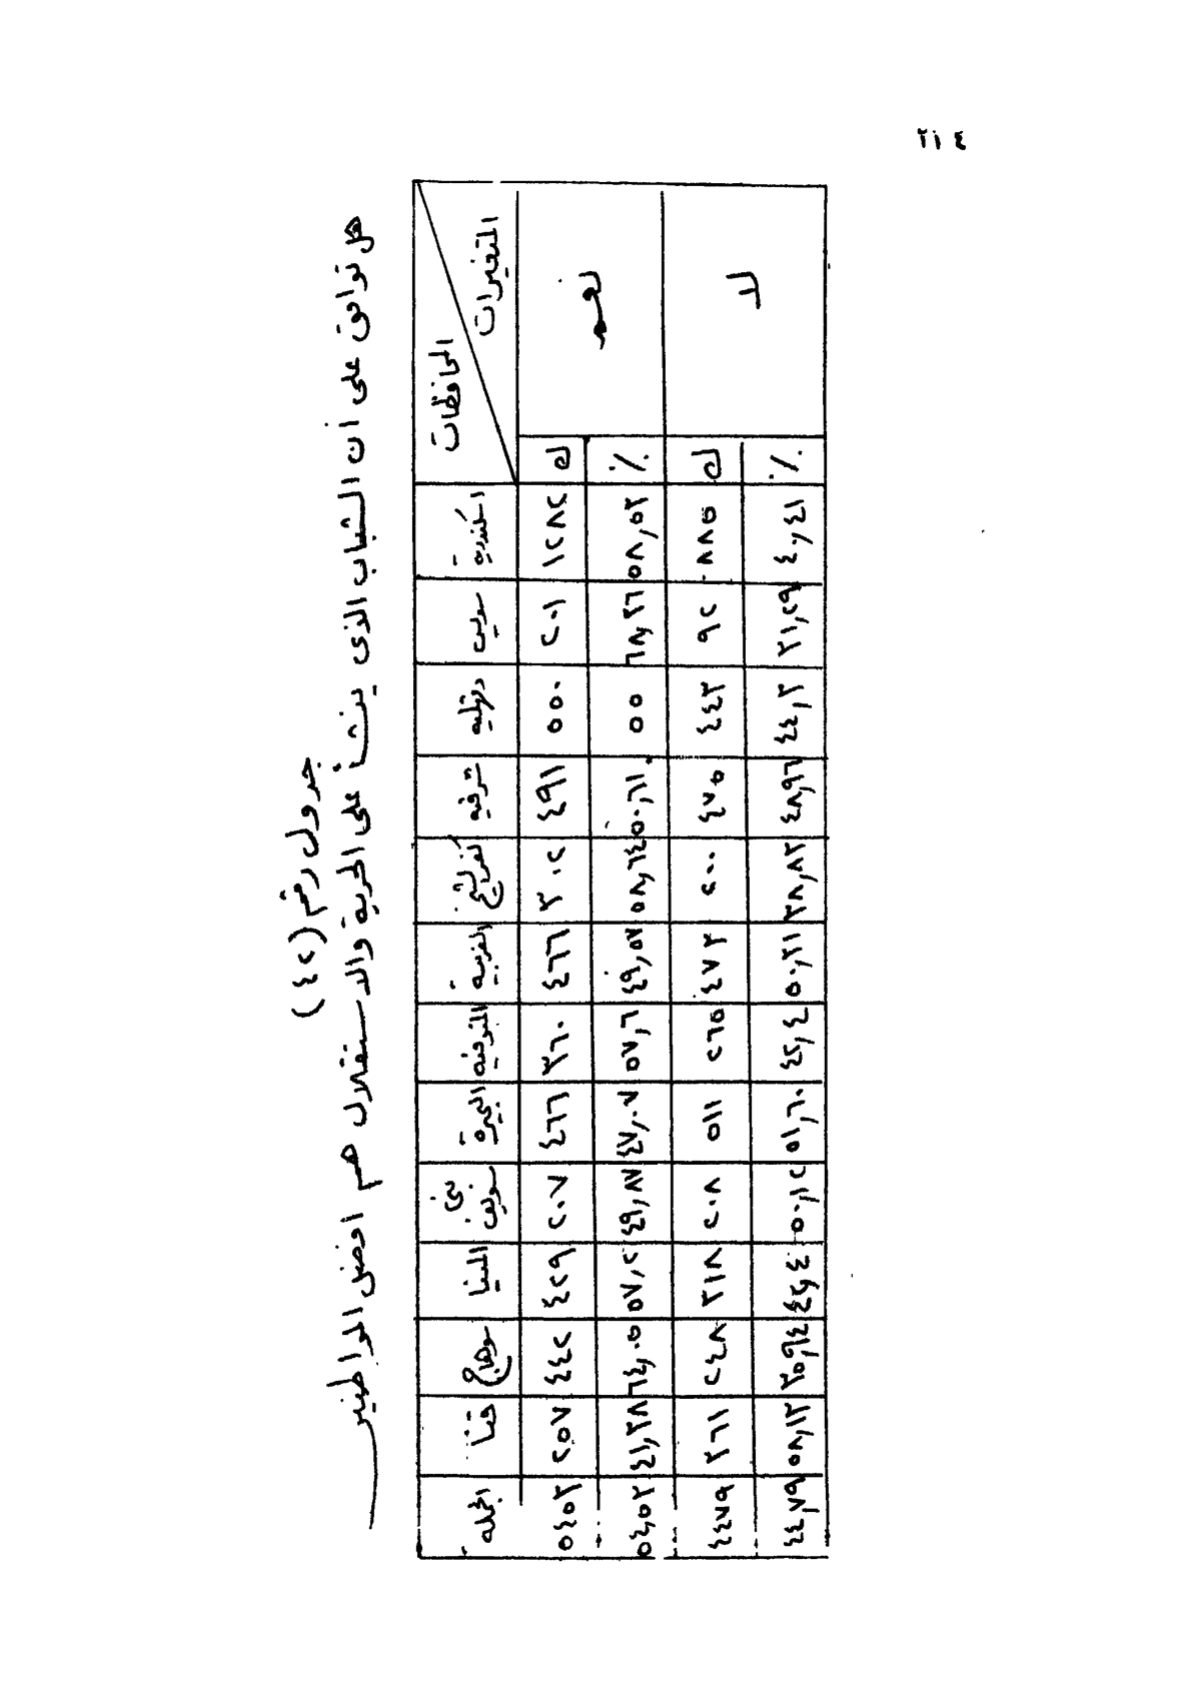 ٢١٤
جدول رقم (٤٢)
هل توافق على ان الشباب الذى ينشأ على الحرية والاستقلال هم افضل المواطنين
المتغيرات المحافظات اسكندرية سويس دقهليه شرقيه كفر الشيخ الغربية المنوفيه البحيرة بنى سويف المنيا سوهاج قنا الجمله
نعم ك ١٢٨٢ ٢٠١ ٥٥٠ ٤٩١ ٣٠٢ ٤٦٦ ٣٦٠ ٤٦٦ ٢٠٧ ٤٢٩ ٤٤٢ ٢٥٧ ٥٤٥٣
٪ ٥٨,٥٣ ٦٨,٣٦ ٥٥ ٥٠,٦١ ٥٨,٦٤ ٤٩,٥٧ ٥٧,٦ ٤٧,٠٧ ٤٩,٨٧ ٥٧,٢ ٦٤,٠٥ ٤١,٣٨ ٥٤,٥٣
لا ك ٨٨٥ ٩٢ ٤٤٣ ٤٧٥ ٢٠٠ ٤٧٣ ٢٦٥ ٥١١ ٢٠٨ ٣١٨ ٢٤٨ ٣٦١ ٤٤٧٩
٪ ٤٠,٤١ ٣١,٢٩ ٤٤,٣ ٤٨,٩٦ ٣٨,٨٣ ٥٠,٣١ ٤٢,٤ ٥١,٦٠ ٥٠,١٢ ٤٢,٤٠ ٣٥,٩٤ ٥٨,١٣ ٤٤,٧٩